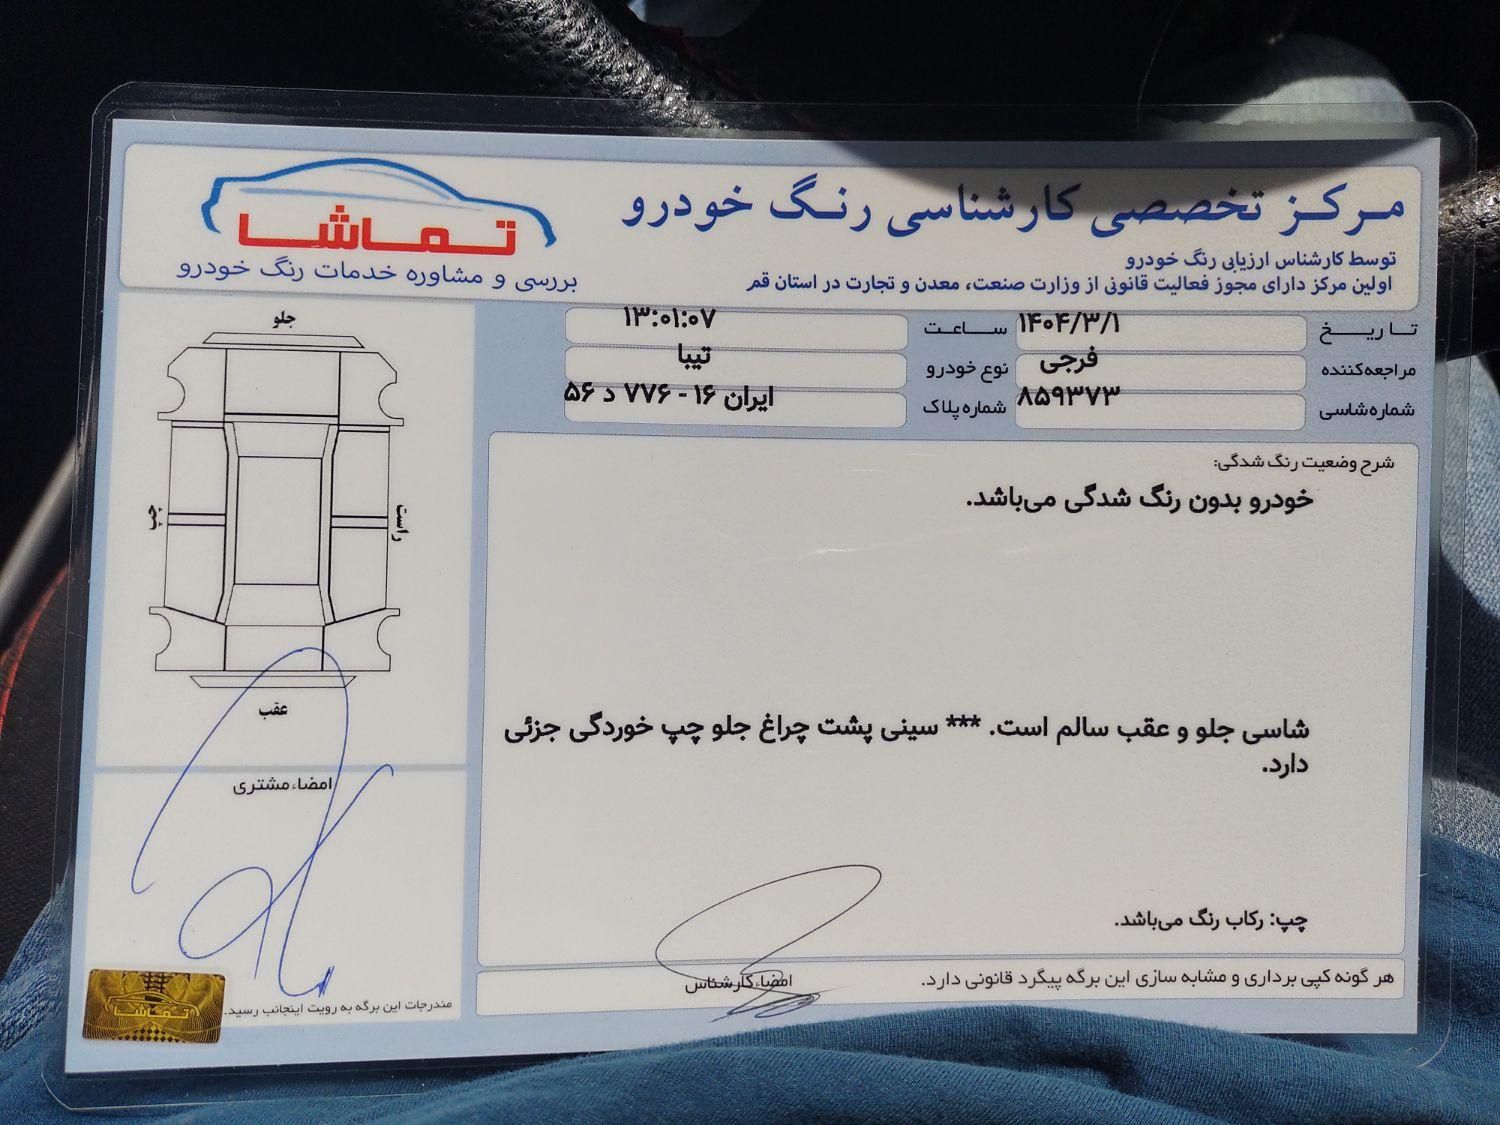 مرکز تخصصی کارشناسی رنگ خودرو
توسط کارشناس ارزیابی رنگ خودرو
اولین مرکز دارای مجوز فعالیت قانونی از وزارت صنعت، معدن و تجارت در استان قم
تماشا
بررسی و مشاوره خدمات رنگ خودرو
تاریخ ۱۴۰۴/۳/۱ ساعت ۱۳:۰۱:۰۷
مراجعه‌کننده فرجی نوع خودرو تیبا
شماره‌شاسی ۸۵۹۳۷۳ شماره پلاک ایران ۱۶ - ۷۷۶ د ۵۶
شرح وضعیت رنگ شدگی:
خودرو بدون رنگ شدگی می‌باشد.
شاسی جلو و عقب سالم است. *** سینی پشت چراغ جلو چپ خوردگی جزئی
دارد.
چپ: رکاب رنگ می‌باشد.
هر گونه کپی برداری و مشابه سازی این برگه پیگرد قانونی دارد.
امضاء کارشناس
جلو
راست
چپ
عقب
امضاء مشتری
مندرجات این برگه به رویت اینجانب رسید.
تماشا